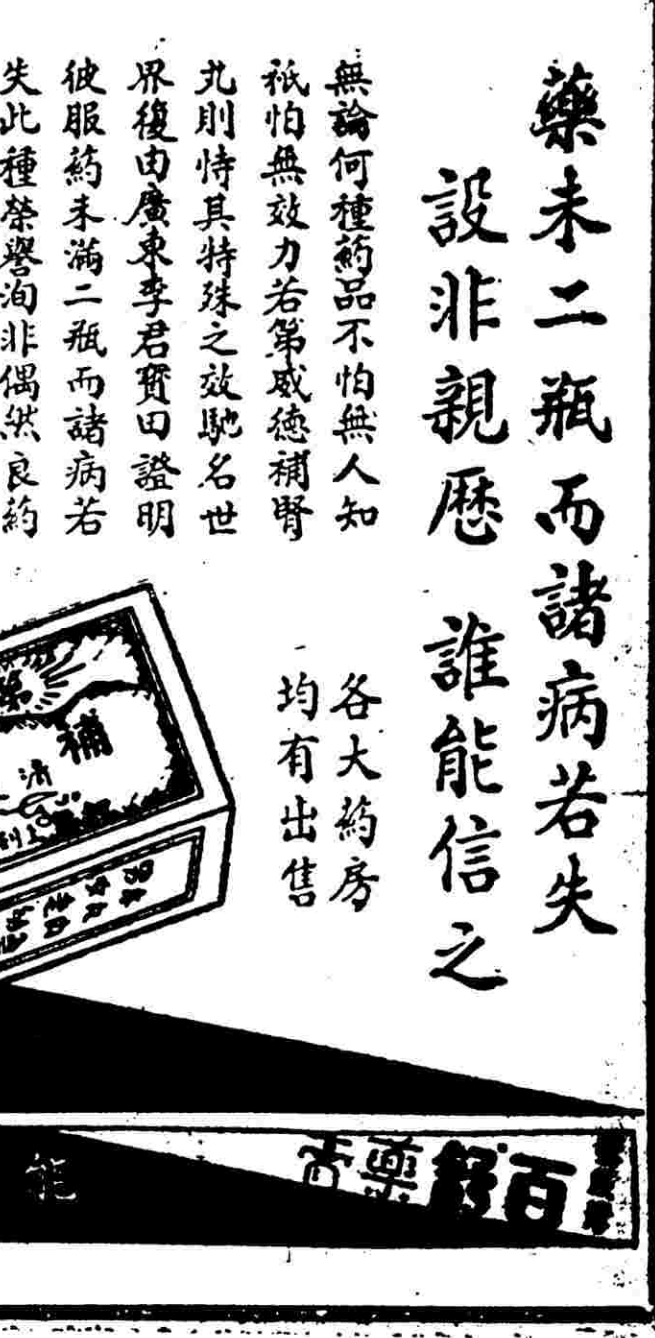 藥未二瓶而諸病若失
設非親歷 誰能信之
無論何種葯品不怕無人知
祇怕無效力若第威德補腎
丸則恃具特殊之效馳名世
界復由廣東李君寶田證明
彼服葯未滿二瓶而諸病若
失此種榮譽洵非偶然良葯
各大葯房
均有出售
補
百齡藥
能